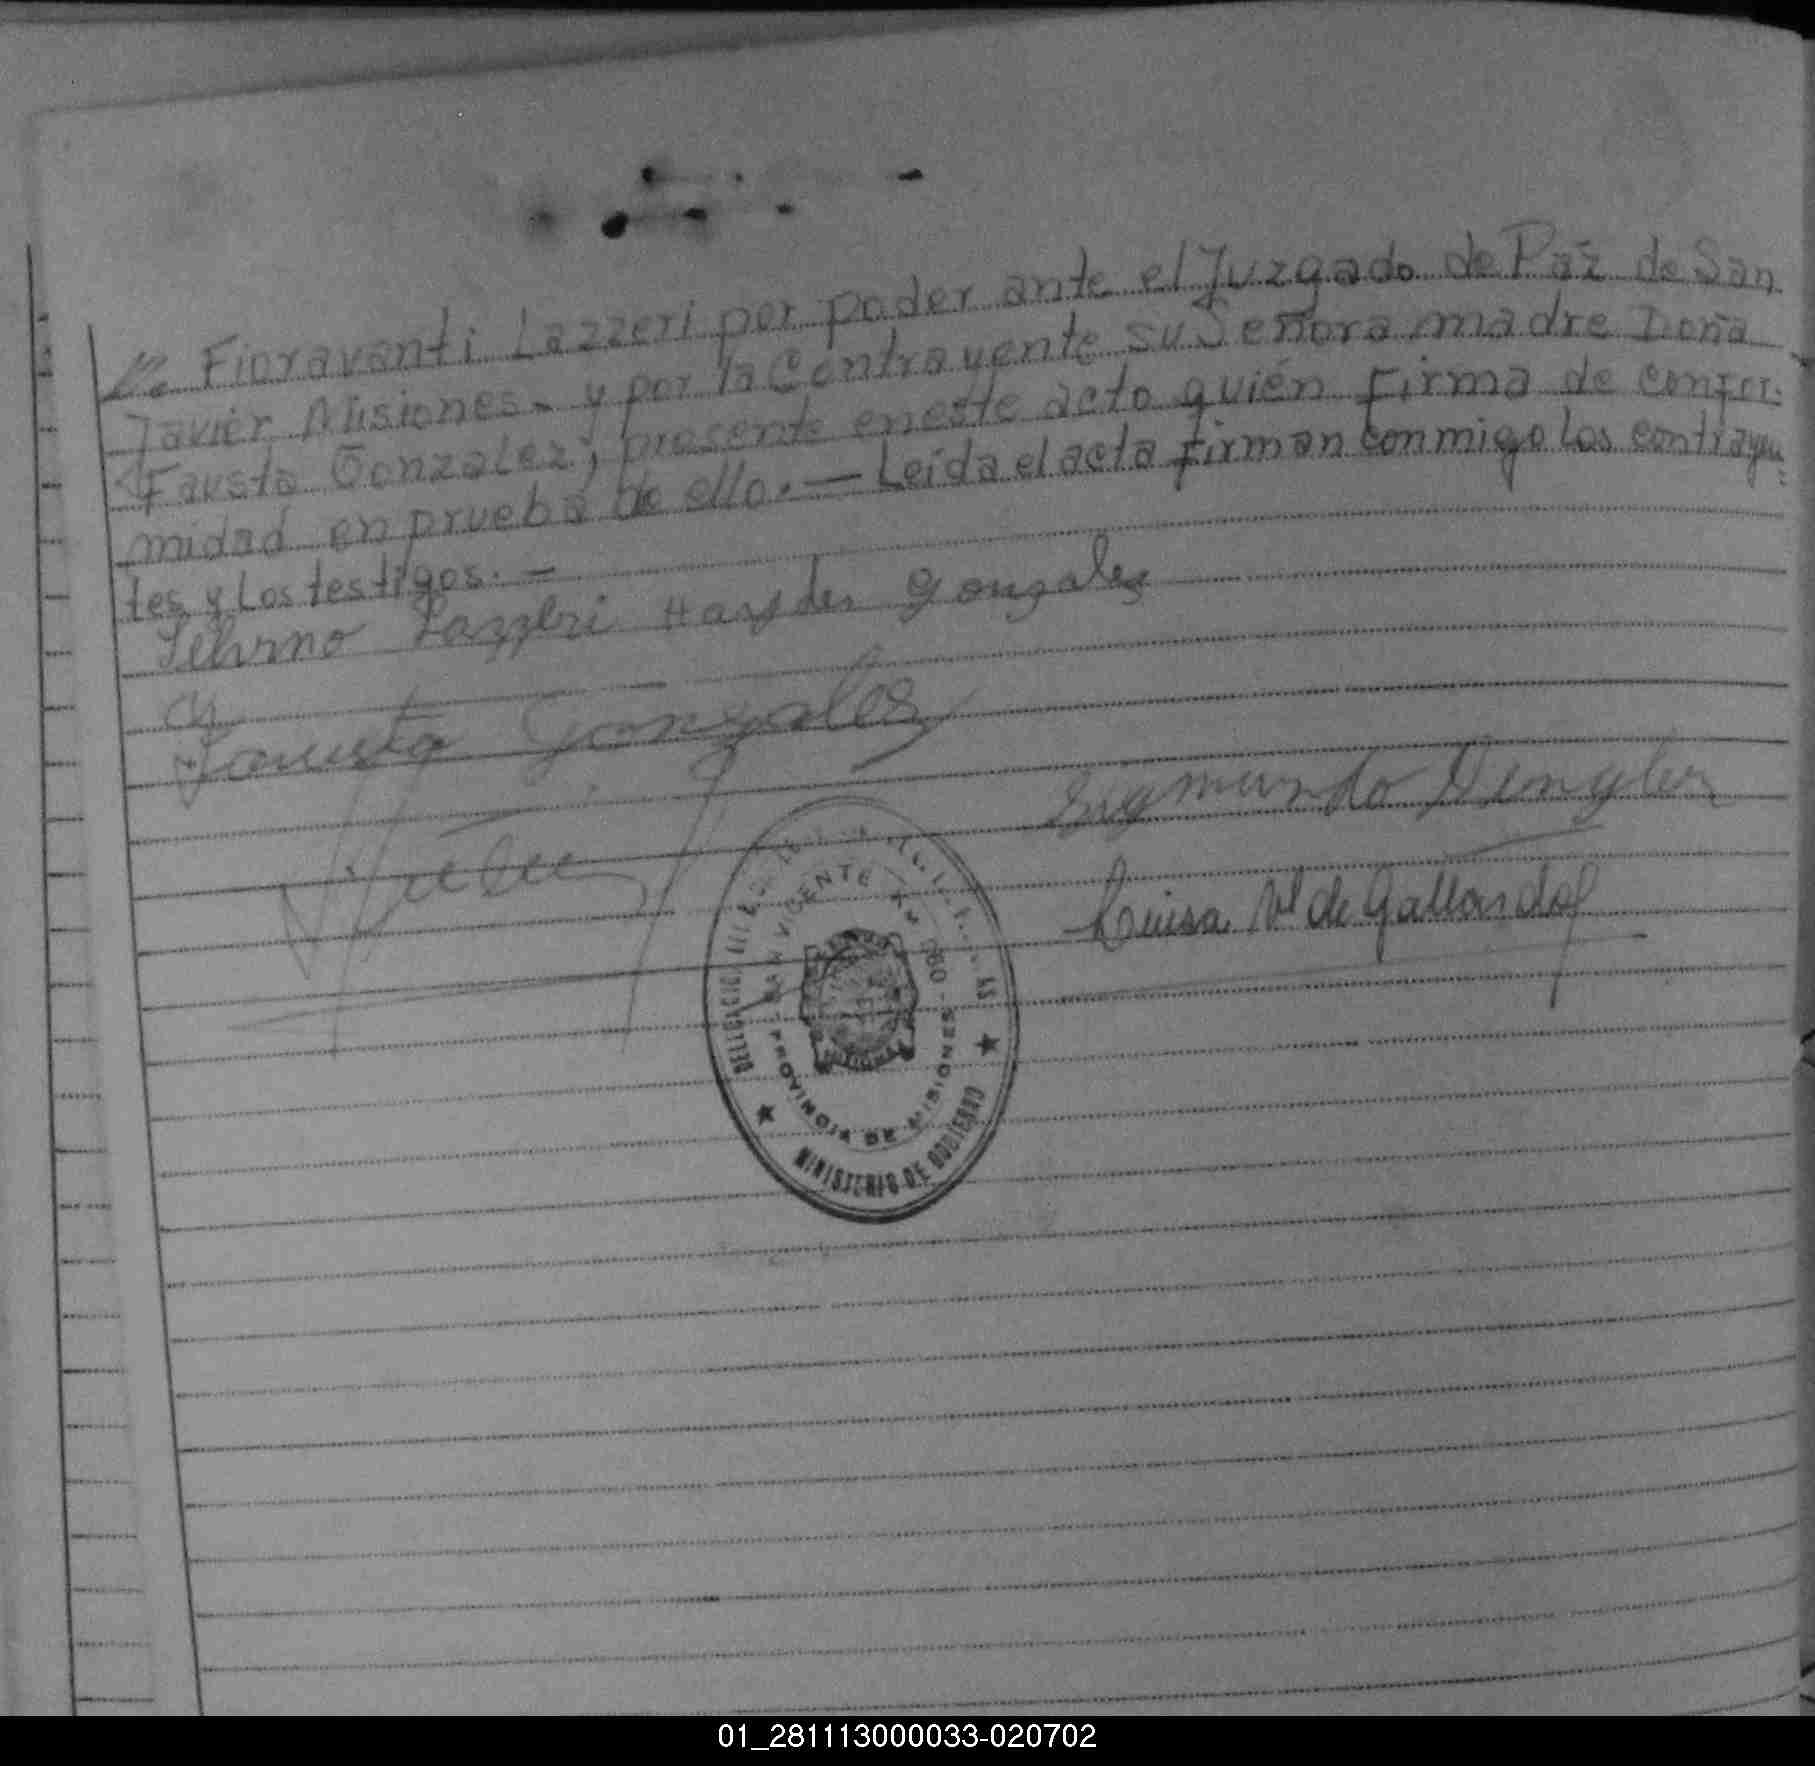 Fioravanti Lazzeri por poder ante el Juzgado de Paz de San
Javier Misiones. y por la Contrayente su Señora madre Doña
Fausta Gonzalez, presente en este acto quién firma de confor-
midad en prueba de ello. — Leída el acta firman conmigo los contrayen-
tes y Los testigos. —
Lazzeri Haydes Gonzalez
Fausta Gonzalez
Sigmundo Dengler
Luisa V. de Gallardo
SAN VICENTE
PROVINCIA DE MISIONES
MINISTERIO DE GOBIERNO
01_281113000033-020702